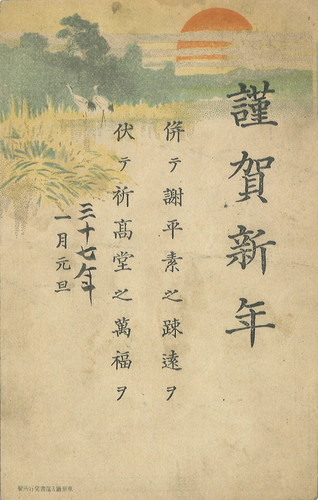 謹賀新年
併テ謝平素之踈遠ヲ
伏テ祈髙堂之萬福ヲ
三十七年
一月元旦